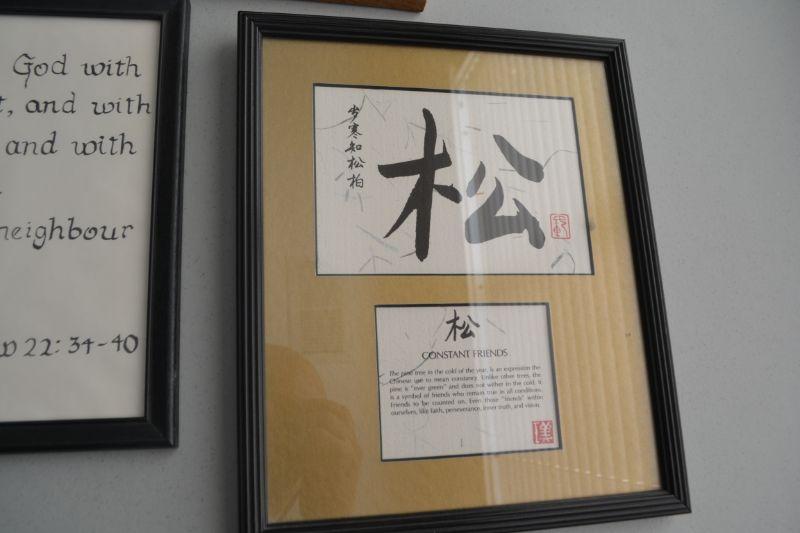 God with
, and with
and with
neighbour
22:34-40
岁寒知松柏
松
松
CONSTANT FRIENDS
The pine tree in the cold of the year, is an expression the
Chinese use to mean constancy. Unlike other trees, the
pine is "ever green" and does not wither in the cold. It
is a symbol of friends who remain true in all conditions.
Friends to be counted on. Even those "friends" within
ourselves, like faith, perseverance, inner truth, and vision.